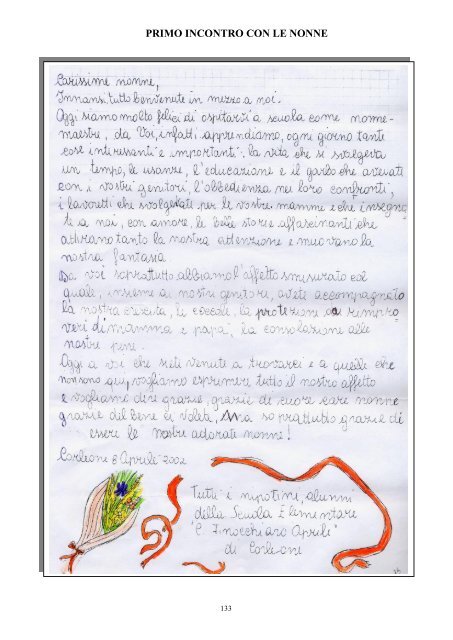 PRIMO INCONTRO CON LE NONNE
Carissime nonne,
Innanzi tutto benvenute in mezzo a noi.
Oggi siamo molto felici di ospitarvi a scuola come nonne-
maestre, da Voi, infatti apprendiamo, ogni giorno tante
cose interessanti e importanti: la vita che si svolgeva
un tempo, le usanze, l'educazione e il garbo che avevate
con i vostri genitori, l'obbedienza nei loro confronti,
i lavoretti che svolgevate per le vostre mamme e che insegna
te a noi, con amore, le belle storie affascinanti che
attirano tanto la nostra attenzione e muovono la
nostra fantasia.
Da voi soprattutto abbiamo l'affetto smisurato col
quale, insieme ai nostri genitori, avete accompagnato
la nostra crescita, le coccole, la protezione ai rimpro
veri di mamma e papà, la consolazione alle
nostre pene.
Oggi a voi che siete venute a trovarci e a quelle che
non sono qui, vogliamo esprimere tutto il nostro affetto
e vogliamo dirvi grazie, grazie di cuore care nonne
grazie del bene di volete, Ma soprattutto grazie di
essere le nostre adorate nonne!
Corleone 8 Aprile 2002
Tutti i nipotini, alunni
della Scuola Elementare
"C. Finocchiaro Aprile"
di Corleone
133